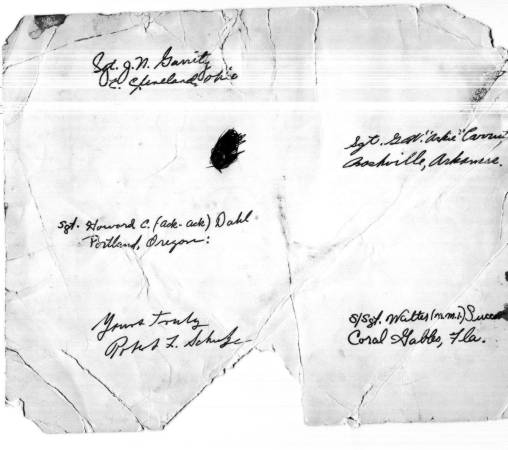 Sgt. J. N. Garrity
E. Cleveland, Ohio
Sgt. G. W. "Arkie"
Arkansas.
Sgt. Howard C. (Ack-Ack) Dahl
Portland, Oregon:
Yours Truly
Robert L.
S/Sgt. Walter (m.m.1)
Coral Gables, Fla.